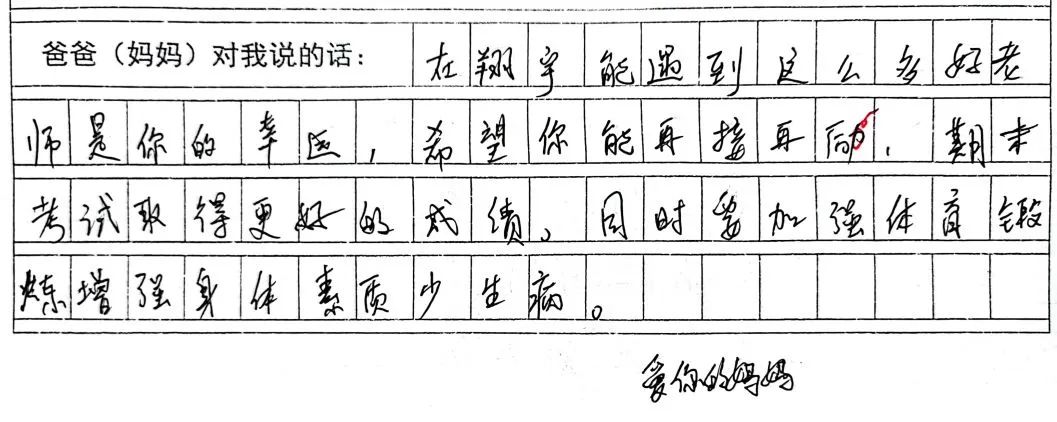 爸爸（妈妈）对我说的话：在翔宇能遇到这么多好老
师是你的幸运，希望你能再接再励，期末
考试取得更好的成绩。同时要加强体育锻
炼增强身体素质少生病。
爱你的妈妈